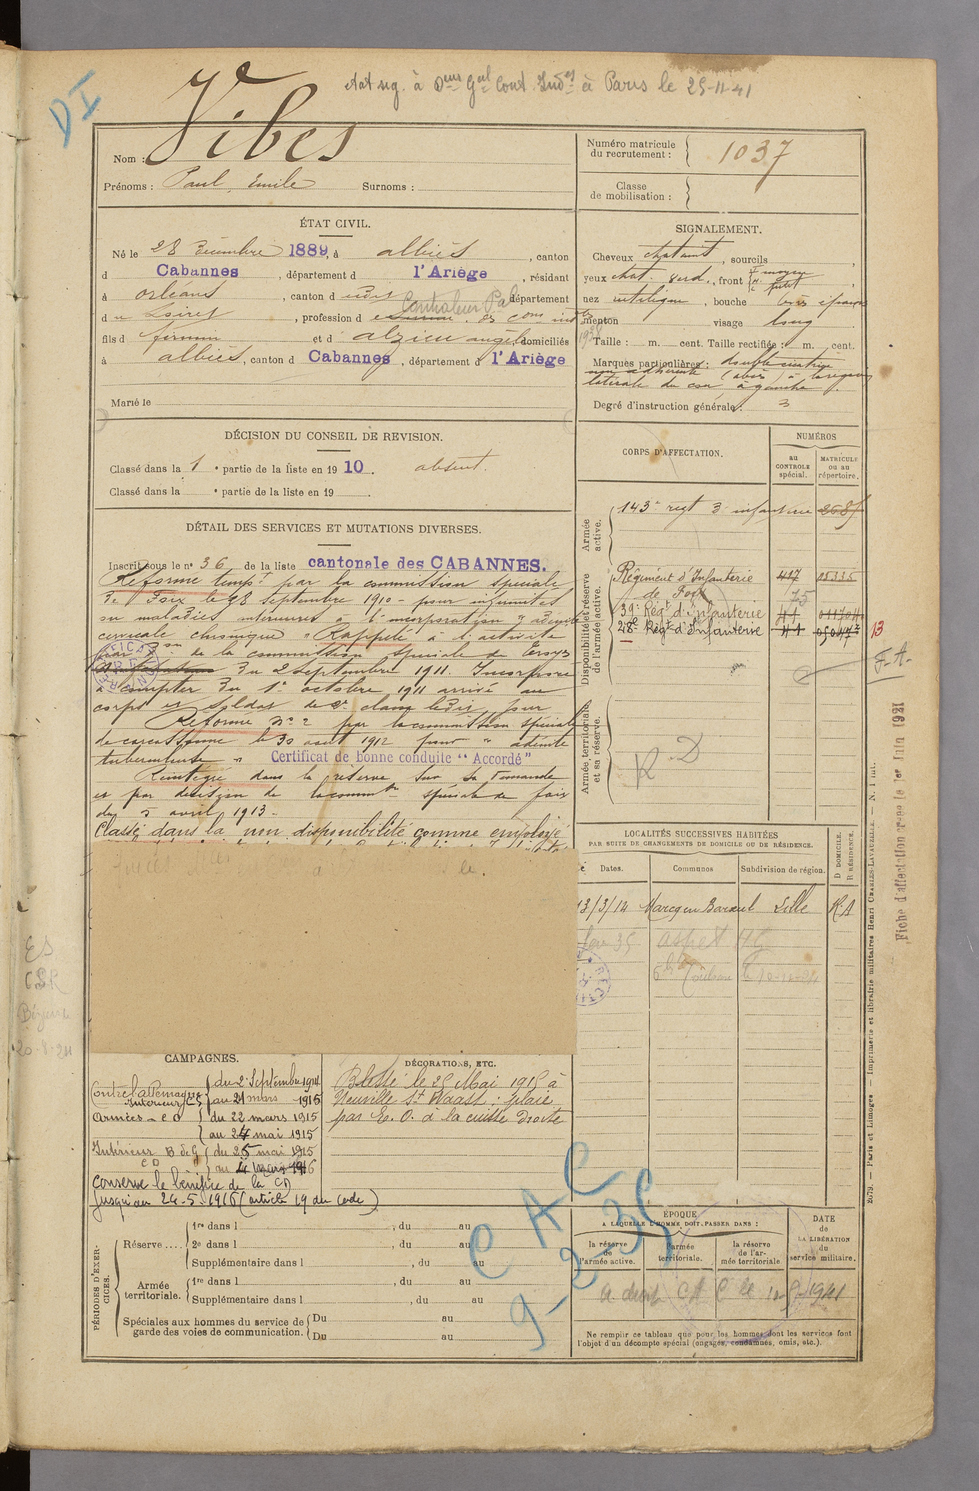 DI
à Paris le 25-11-41
Nom : Vibes
Prénoms : Paul, Emile Surnoms :
Numéro matricule du recrutement : 1037
Classe de mobilisation :
ÉTAT CIVIL.
Né le 28 Décembre 1889, à albiès, canton
d Cabannes, département d l'Ariège, résidant
à orléans, canton d udit département
d u Loiret, profession d
fils d firmin et d alzieu angèle domiciliés
à albiès, canton d Cabannes, département d l'Ariège
Marié le
SIGNALEMENT.
Cheveux chatains, sourcils
yeux chat. verd., front moyen
nez rectiligne, bouche épaisse
menton visage long
Taille : m. cent. Taille rectifiée : m. cent.
Marques particulières : double cicatrice
non adhérente
latérale du cou à gauche.
Degré d'instruction générale : 3
DÉCISION DU CONSEIL DE REVISION.
Classé dans la 1 e partie de la liste en 1910. absent.
Classé dans la e partie de la liste en 19
DÉTAIL DES SERVICES ET MUTATIONS DIVERSES.
Inscrit sous le n° 36 de la liste cantonale des CABANNES.
Réformé tempt par la commission spéciale
de Foix le 28 septembre 1910 - pour infirmités
ou maladies antérieures à l'incorporation "adénite
cervicale chronique" Rappelé à l'activité
par Don de la commission spéciale de
du 2 Septembre 1911. Incorporé
à compter du 1er octobre 1911 arrivé au
corps et soldat de 2e classe ledit jour
Réformé n° 2 par la commission spéciale
de carcassonne le 30 août 1912 pour "adénite
tuberculeuse" Certificat de bonne conduite "Accordé"
Réintégré dans la réserve sur sa demande
et par décision de la common spéciale de foix
du 5 avril 1913.
Classé dans la non disponibilité comme employé
CORPS D'AFFECTATION.
NUMÉROS
au CONTROLE spécial.
MATRICULE ou au répertoire.
Armée active.
143e regt d'infanterie
Disponibilité et réserve de l'armée active.
Régiment d'Infanterie 417 05335
de Foix 75
39e Régt d'infanterie
28e Régt d'Infanterie
13
F.A.
Armée territoriale et sa réserve.
R.D
Fiche d'affectation créée le 1er Juin 1921
LOCALITÉS SUCCESSIVES HABITÉES
PAR SUITE DE CHANGEMENTS DE DOMICILE OU DE RÉSIDENCE.
Dates. Communes Subdivision de région. D DOMICILE. R RÉSIDENCE.
13/3/14 Marcq en Baroeul Lille R.A
35 aspet
ES
CSR
CAMPAGNES.
Contre l'allemagne
Intérieur CS du 2 Septembre 1914
au 21 mars 1915
Armées - CD du 22 mars 1915
au 24 mai 1915
Intérieur B de G du 25 mai 1915
CD au 4 mars 1916
Conserve le bénéfice de la CD
jusqu'au 24-5-1916 (article 19 du code)
DÉCORATIONS, ETC.
Blessé le 25 Mai 1915 à
Neuville St Waast : plaie
par E. O. à la cuisse droite
PÉRIODES D'EXERCICES.
Réserve....
1re dans l , du au
2e dans l , du au
Supplémentaire dans l , du au
Armée territoriale.
1re dans l , du au
Supplémentaire dans l , du au
Spéciales aux hommes du service de garde des voies de communication.
Du au
Du au
CAC
9-2-35
ÉPOQUE
A LAQUELLE L'HOMME DOIT PASSER DANS :
la réserve de l'armée active.
l'armée territoriale.
la réserve de l'armée territoriale.
DATE DE LA LIBÉRATION du service militaire.
a droit CAC le
Ne remplir ce tableau que pour les hommes dont les services font
l'objet d'un décompte spécial (engagés, condamnés, omis, etc.).
2679. — Paris et Limoges — Imprimerie et librairie militaires Henri CHARLES-LAVAUZELLE. — N. 1 int.